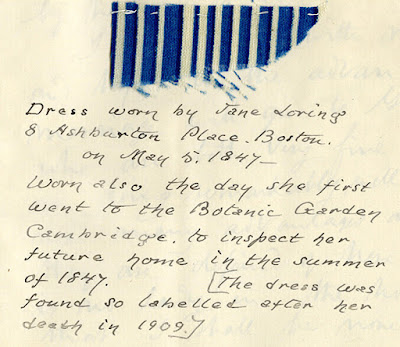 Dress worn by Jane Loring
8 Ashburton Place. Boston.
on May 5. 1847-
Worn also the day she first
went to the Botanic Garden
Cambridge. to inspect her
future home in the summer
of 1847. [The dress was
found so labelled after her
death in 1909.]